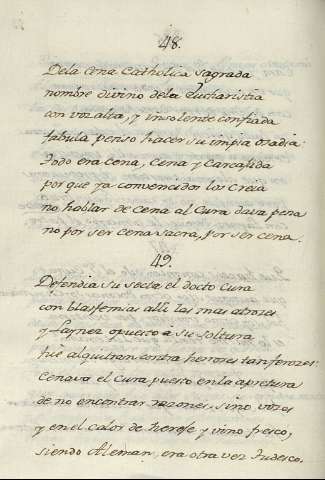 48.
Dela Cena Catholica Sagrada
nombre divino dela Eucharistia
con voz alta, y insolente confiada
fabula penso hacer su impia osadia:
todo era cena, Cena y Carcajada
porque ya convencidos los Creia
no hablar de cena al Cura dava pena
no por ser Cena sacra, por ser cena.
49.
Defendia su secta el docto cura
con blasfemias alli las mas atroces
y Laynez opuesto â su soltura
fue alquitran contra herrores tan feroces:
Cenava el cura puesto en la apretura
de no encontrar razones, sino voces
y en el calor de herege y vino fresco,
siendo Aleman, era otra vez tudesco.